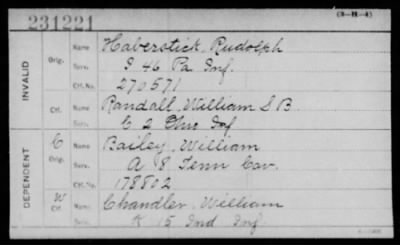 231221
(3-H-4)
INVALID
Orig.
Name Haberstick, Rudolph
Serv. I 46 Pa Inf.
Ctf. No. 270571
Ctf.
Name Randall, William S B
Serv. C 2 Ohio Inf
DEPENDENT
C
Orig.
Name Bailey, William
Serv. A 8 Tenn Cav.
Ctf. No. 178802
W
Ctf.
Name Chandler, William
Serv. K 15 Ind Inf